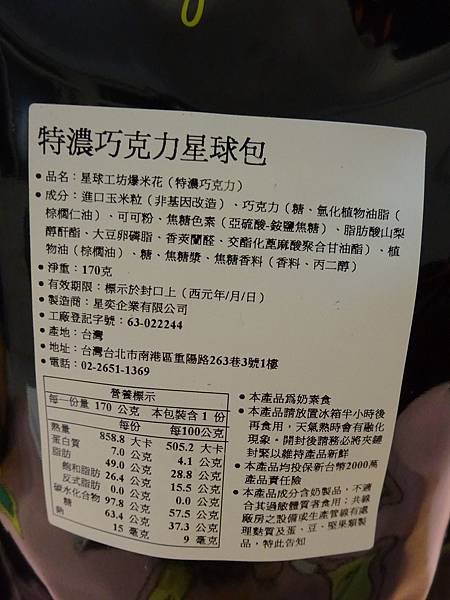 特濃巧克力星球包
• 品名：星球工坊爆米花（特濃巧克力）
• 成分：進口玉米粒（非基因改造）、巧克力（糖、氫化植物油脂（
棕櫚仁油）、可可粉、焦糖色素（亞硫酸-銨鹽焦糖）、脂肪酸山梨
醇酐酯、大豆卵磷脂、香莢蘭醛、交酯化蓖麻酸聚合甘油酯）、植
物油（棕櫚油）、糖、焦糖漿、焦糖香料（香料、丙二醇）
• 淨重：170克
• 有效期限：標示於封口上（西元年/月/日）
• 製造商：星奕企業有限公司
• 工廠登記字號：63-022244
• 產地：台灣
• 地址：台灣台北市南港區重陽路263巷3號1樓
• 電話：02-2651-1369
營養標示
每一份量 170 公克 本包裝含 1 份
每份 每100公克
熱量 858.8 大卡 505.2 大卡
蛋白質 7.0 公克 4.1 公克
脂肪 49.0 公克 28.8 公克
飽和脂肪 26.4 公克 15.5 公克
反式脂肪 0.0 公克 0.0 公克
碳水化合物 97.8 公克 57.5 公克
糖 63.4 公克 37.3 公克
鈉 15 毫克 9 毫克
• 本產品為奶素食
• 本產品請放置冰箱半小時後
再食用，天氣熱時會有融化
現象。開封後請務必將夾鏈
封緊以維持產品新鮮
• 本產品均投保新台幣2000萬
產品責任險
• 本產品成分含奶製品，不適
合其過敏體質者食用；共線
廠房之設備或生產管線有處
理麩質及蛋、豆、堅果類製
品，特此告知